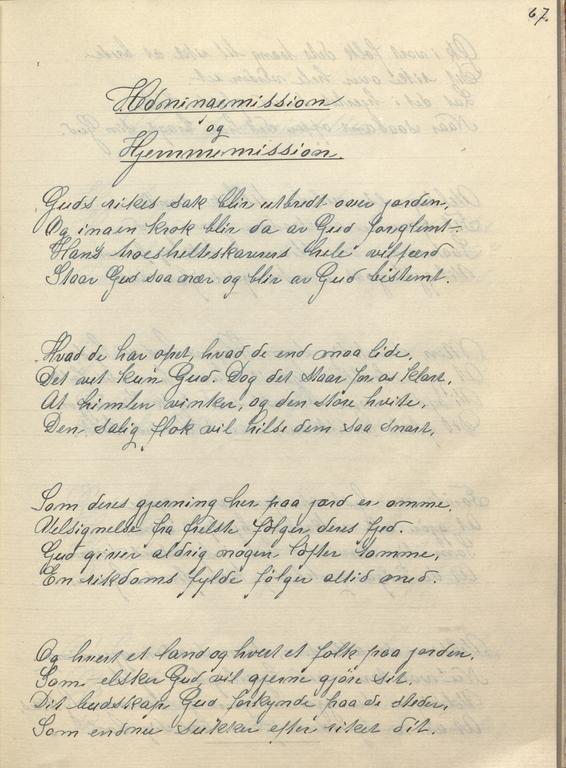 67.
Hedningemission
og
Hjemmemission.
Guds rikes sak blir utbredt over jorden,
Og ingen krok blir da av Gud forglemt.
Hans troeshelteskarers hele velfærd
Staar Gud saa nær og blir av Gud bestemt.
Hvad de har ofret, hvad de end maa lide,
Det vet kun Gud. Dog det staar for os klart,
At himlen vinker, og den store hvite,
Den salig flok vil hilse dem saa snart,
Som deres gjerning her paa jord er omme.
Velsignelse fra frelste følger deres fjed.
Gud giver aldrig nogen løfter tomme,
En rikdoms fylde følger altid med.
Og hvert et land og hvert et folk paa jorden,
Som elsker Gud, vil gjerne gjøre sit,
Dit budskap Gud forkynde paa de steder,
Som endnu sukker efter riket dit.